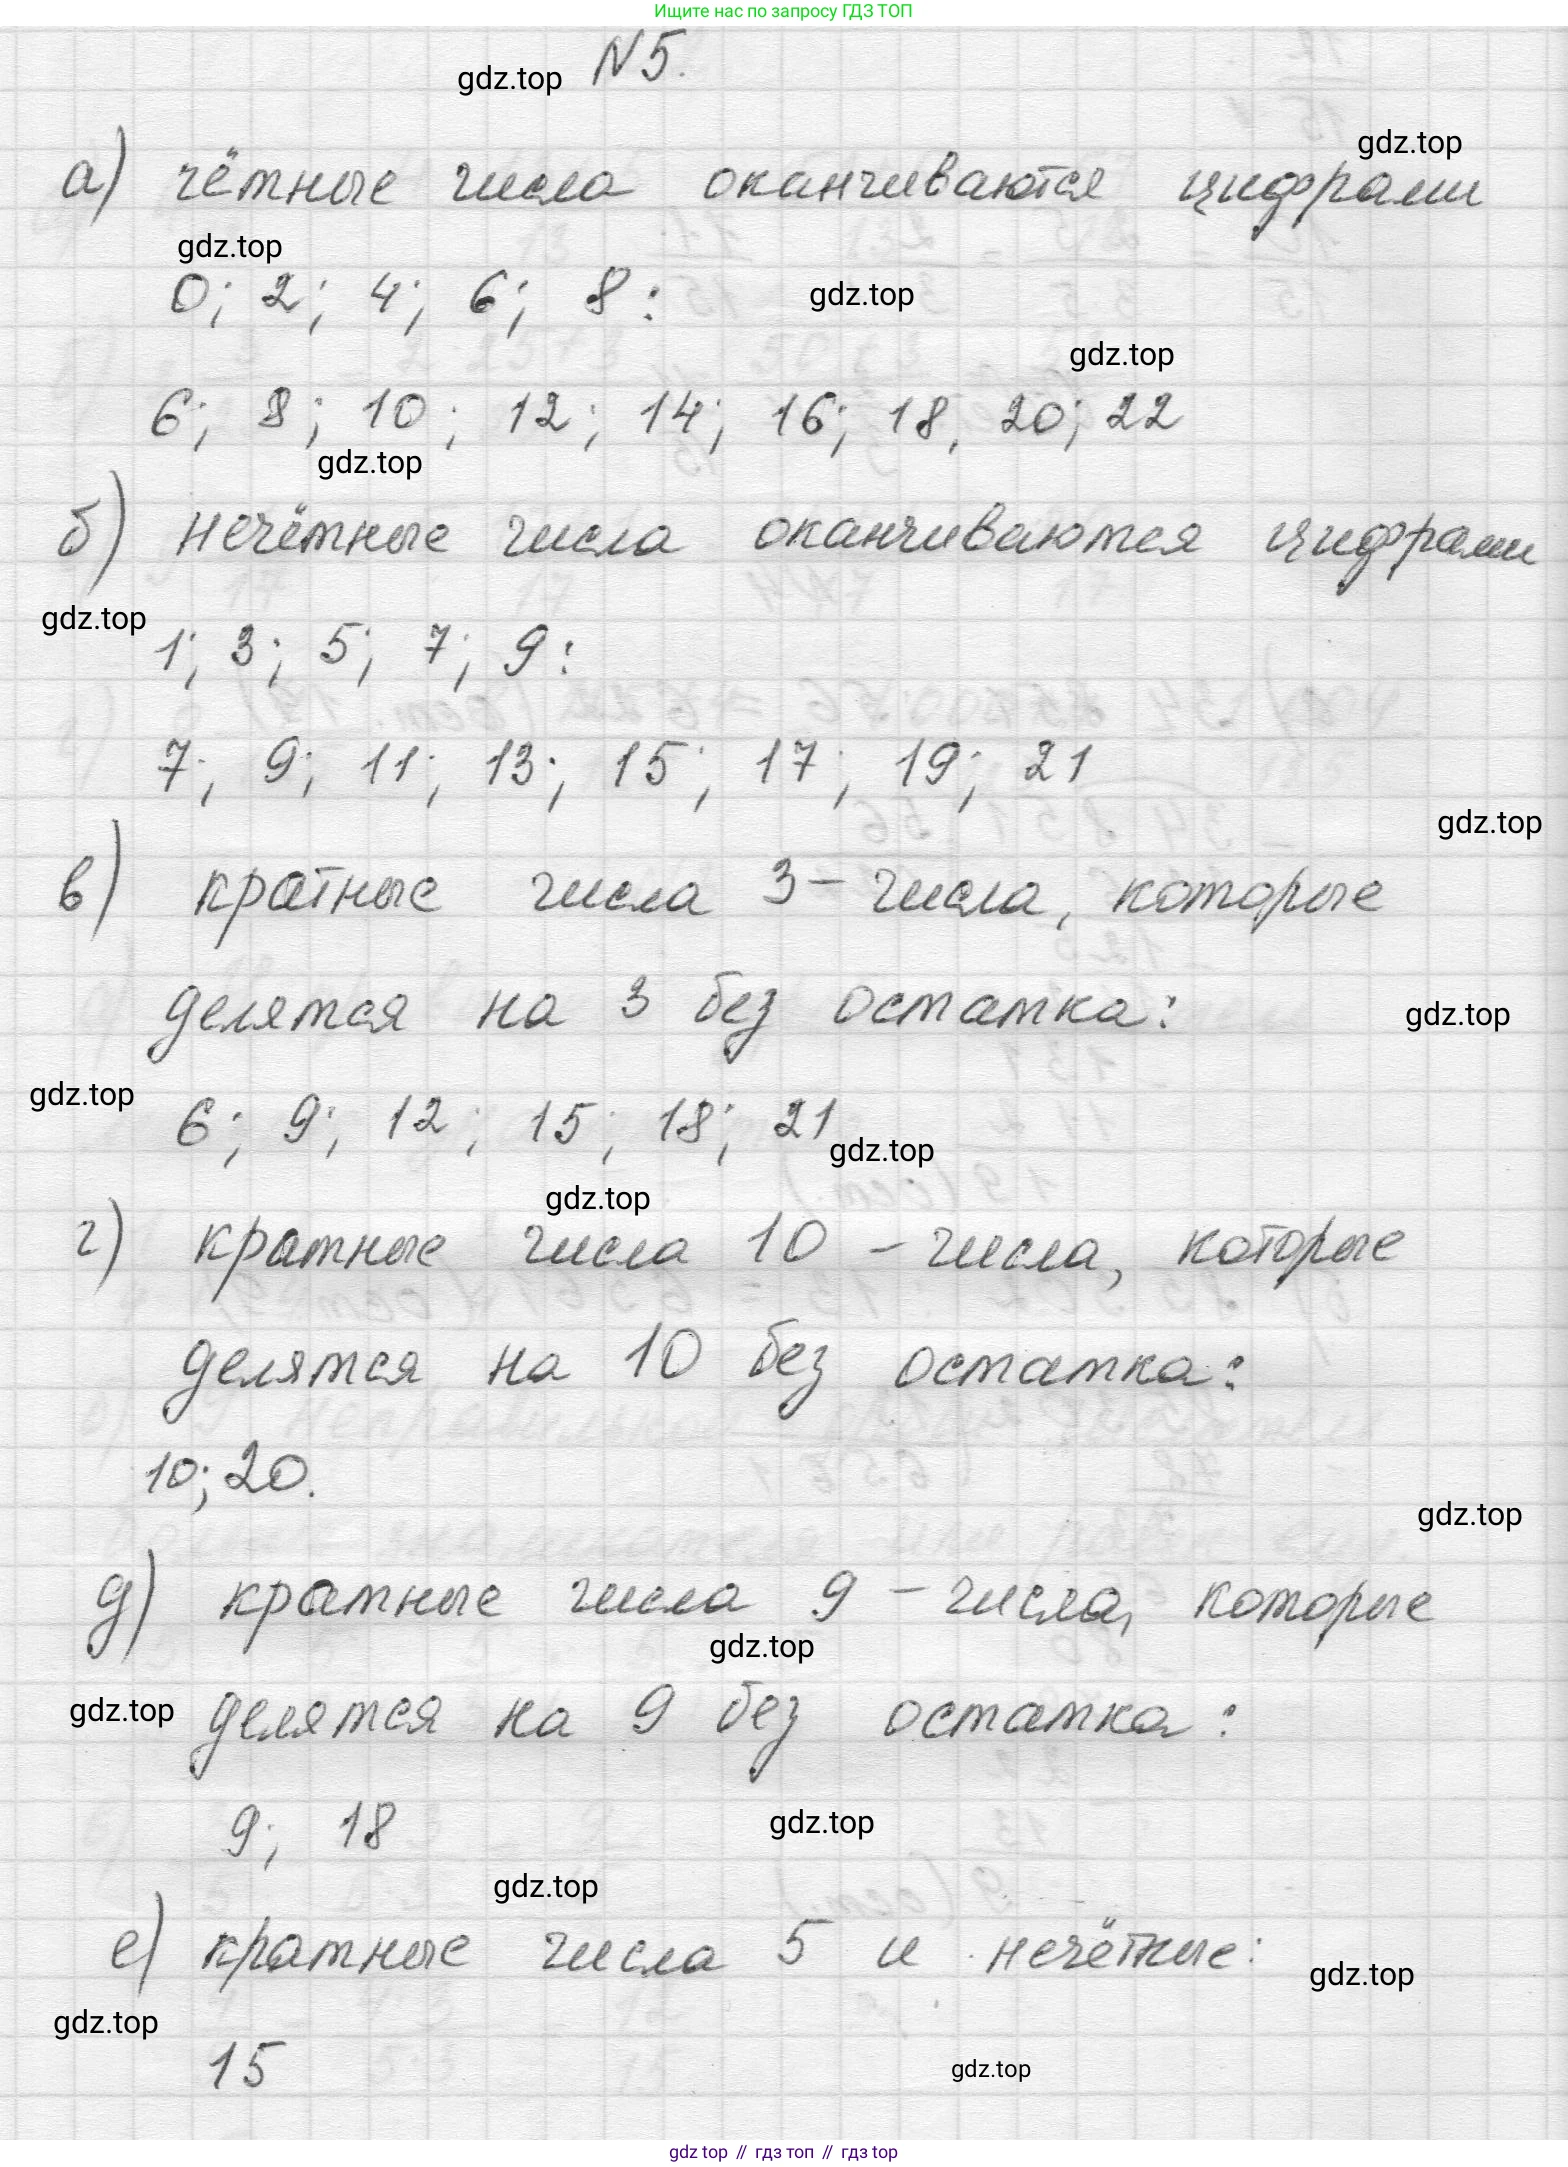 Ищите нас по запросу ГДЗ ТОП
gdz.top N 5.
gdz.top
а) чётные числа оканчиваются цифрами
gdz.top
0; 2; 4; 6; 8:
gdz.top
gdz.top
6; 8; 10; 12; 14; 16; 18, 20; 22
gdz.top
б) нечётные числа оканчиваются цифрами
gdz.top
1; 3; 5; 7; 9:
7; 9; 11; 13; 15; 17; 19; 21
gdz.top
в) кратные числа 3 – числа, которые
делятся на 3 без остатка:
gdz.top
gdz.top
6; 9; 12; 15; 18; 21
gdz.top
gdz.top
г) кратные числа 10 – числа, которые
делятся на 10 без остатка:
10; 20.
gdz.top
д) кратные числа 9 – числа, которые
gdz.top
gdz.top
делятся на 9 без остатка:
9; 18
gdz.top
gdz.top
е) кратные числа 5 и нечётные:
gdz.top
gdz.top
15
gdz.top
gdz top // гдз топ // гдз top